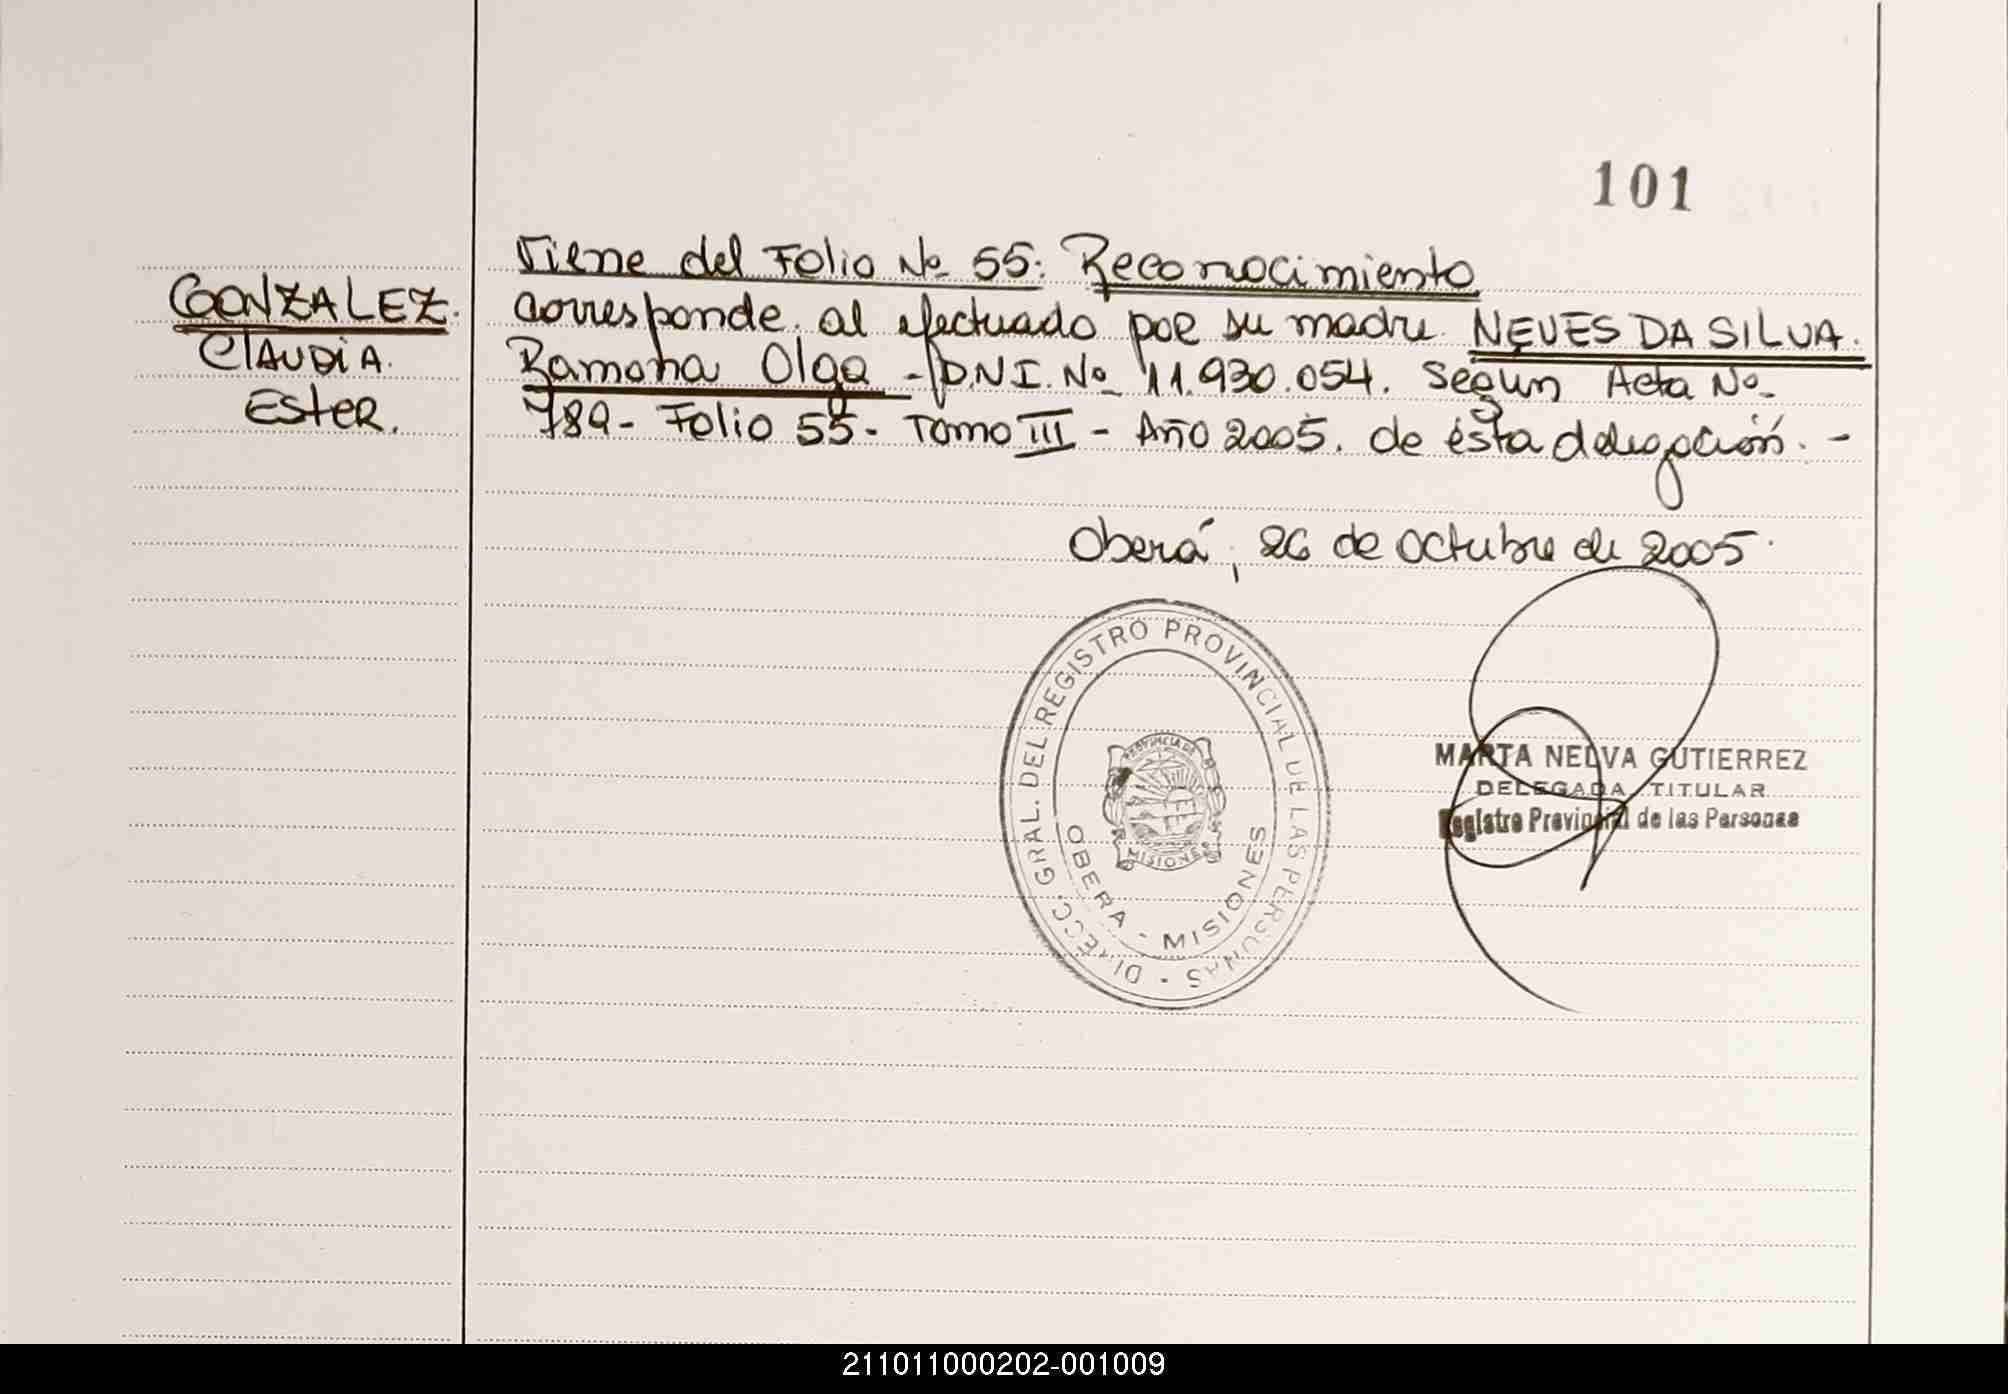 101
Viene del Folio No 55: Reconocimiento
GONZALEZ.
Claudia.
Ester.
corresponde. al efectuado por su madre NEVES DA SILVA.
Ramona Olga - D.N.I. No 11.930.054. Según Acta No
789- Folio 55- Tomo III - Año 2005. de ésta delegación. -
Oberá, 26 de Octubre de 2005.
DIRECC. GRAL. DEL REGISTRO PROVINCIAL DE LAS PERSONAS -
PROVINCIA DE
MISIONES
OBERA - MISIONES
MARTA NELVA GUTIERREZ
DELEGADA TITULAR
Registro Provincial de las Personas
211011000202-001009